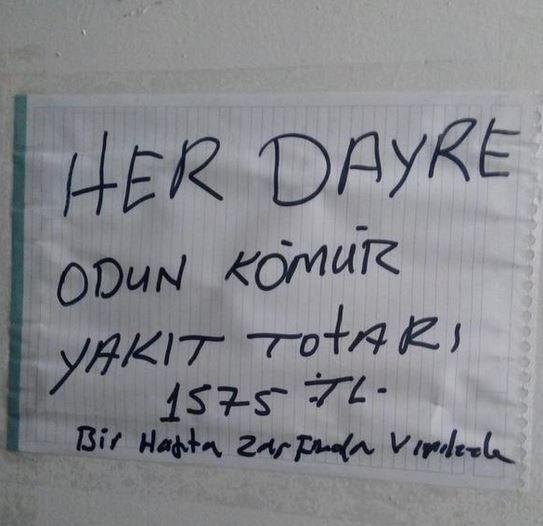 HER DAYRE
ODUN KÖMÜR
YAKIT TOtARI
1575 TL.
Bir Hafta Zarfında